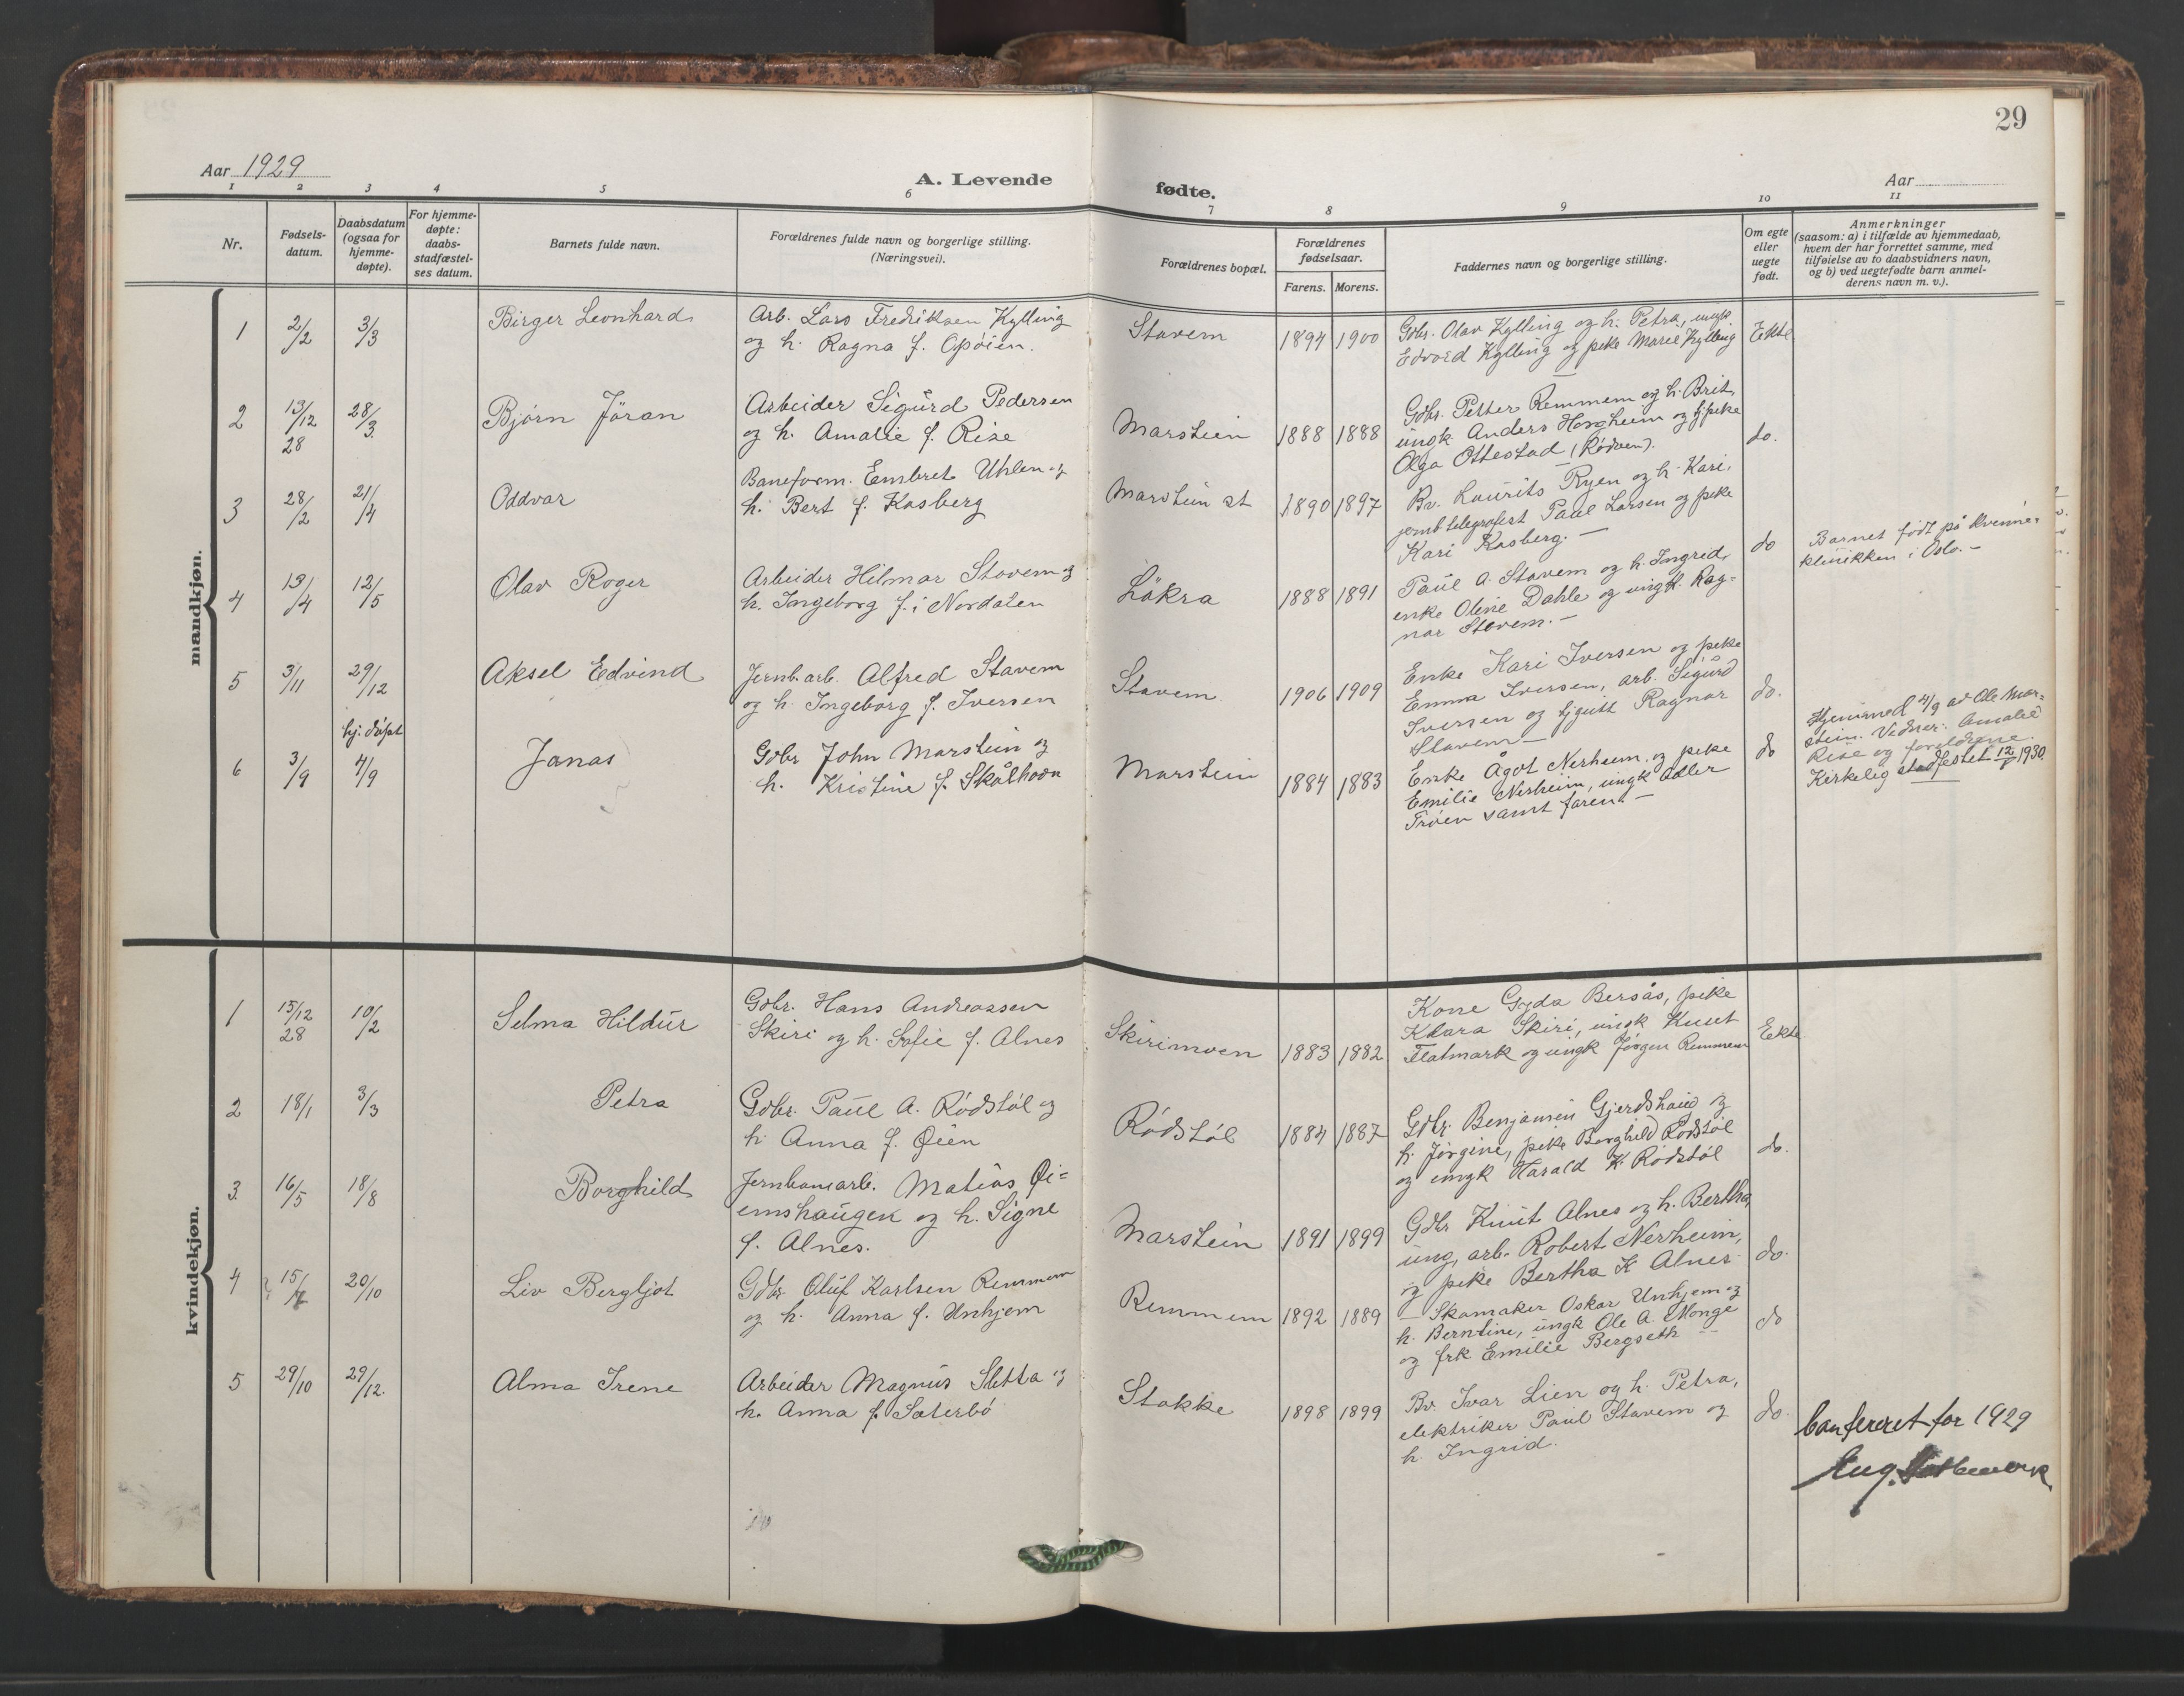 29
Aar 1929
A. Levende
fødte.
Aar
1 2 3 4 5 6 7 8 9 10 11
Nr.
Fødsels-
datum.
Daabsdatum
(ogsaa for
hjemme-
døpte).
For hjemme-
døpte:
daabs-
stadfæstel-
ses datum.
Barnets fulde navn.
Forældrenes fulde navn og borgerlige stilling.
(Næringsvei).
Forældrenes bopæl.
Forældrenes
fødselsaar.
Farens. Morens.
Faddernes navn og borgerlige stilling.
Om egte
eller
uegte
født.
Anmerkninger
(saasom: a) i tilfælde av hjemmedaab,
hvem der har forrettet samme, med
tilføielse av to daabsvidners navn,
og b) ved uegtefødte barn anmel-
derens navn m. v.).
mandkjøn.
1 2/2 3/3 Birger Leonhard
Arb. Lars Fredriksen Kylling
og h. Ragna f. Opöien.
Stavem 1894 1900
Gdbr. Olav Kylling og h. Petra, ungk
Edvard Kylling og pike Marie Kylling
Ekte
2 13/12 28 28/3 Bjørn Jöran
Arbeider Sigurd Pedersen
og h. Amalie f. Rise
Marstein 1888 1888
Gdbr. Petter Remmem og h. Brit,
ungk Anders Horgheim og tj.pike
Olga Ottestad (Rödven).
do.
3 28/2 21/4 Oddvar
Baneform. Embret Uhlen og
h. Bert f. Kasberg
Marstein st 1890 1897
Bv. Laurits Ryen og h. Kari,
jernb telegrafist Paul Larsen og pike
Kari Kasberg. —
do
Barnet født på Kvinne-
klinikken i Oslo. –
4 13/4 12/5 Olav Roger
Arbeider Hilmar Stavem og
h. Ingeborg f. i Nordalen
Lökra 1888 1891
Paul A. Stavem og h. Ingrid,
enke Oline Dahle og ungk. Rag-
nar Stavem. –
5 3/11 29/12 Aksel Edvind
Jernb.arb. Alfred Stavem
og h. Ingeborg f. Iversen
Stavem 1906 1909
Enke Kari Iversen og pike
Emma Iversen, arb. Sigurd
Iversen og tj.gutt Ragnar
Stavem –
do.
6 3/9 hj. döpt 4/9 Jonas
Gdbr John Marstein og
h. Kristine f. Skålhavn
Marstein 1884 1883
Enke Ågot Nerheim og pike
Emilie Nerheim, ungk Adler
Tröen samt faren. –
do
Hjemmed 4/9 av Ole Mar-
stein. Vidner: Amalie
Rise og foreldrene.
Kirkelig stadfestet 12/ 1930.
kvindekjøn.
1 15/12 28 10/2 Selma Hildur
Gdbr. Hans Andreassen
Skiri og h. Sofie f. Alnes
Skirimoen 1883 1882
Kone Gyda Bersås, pike
Klara Skiri, ungk Knut
Flatmark og ungk Jörgen Remmem
Ekte
2 18/1 3/3 Petra
Gdbr. Paul A. Rödstöl og
h. Anna f. Öien
Rödstöl 1884 1887
Gdbr. Benjamin Gjerdshaug og
h. Jörgine, pike Borghild Rödstöl
og ungk Harald K. Rödstöl
do.
3. 16/5 18/8 Borghild
Jernbanearb. Matias Öi-
emshaugen og h. Signe
f. Alnes.
Marstein 1891 1899
Gdbr Knut Alnes og h. Bertha,
ung. arb. Robert Nerheim,
og pike Bertha K Alnes
do.
4 15/7 20/10 Liv Bergljot
Gdbr Oluf Karlsen Remmem
og h. Anna f. Unhjem
Remmem 1892 1889
– Skomaker Oskar Unhjem og
h. Berntine, ungk Ole A. Monge
og frk Emilie Bergseth –
do
5 29/10 29/12. Alma Irene
Arbeider Magnus Sletta og
h. Anna f. Sæterbö
Stokke 1898 1899
Bv. Ivar Lien og h. Petra,
elektriker Paul Stavem og
h. Ingrid.
do.
Confereret for 1929
Aug.